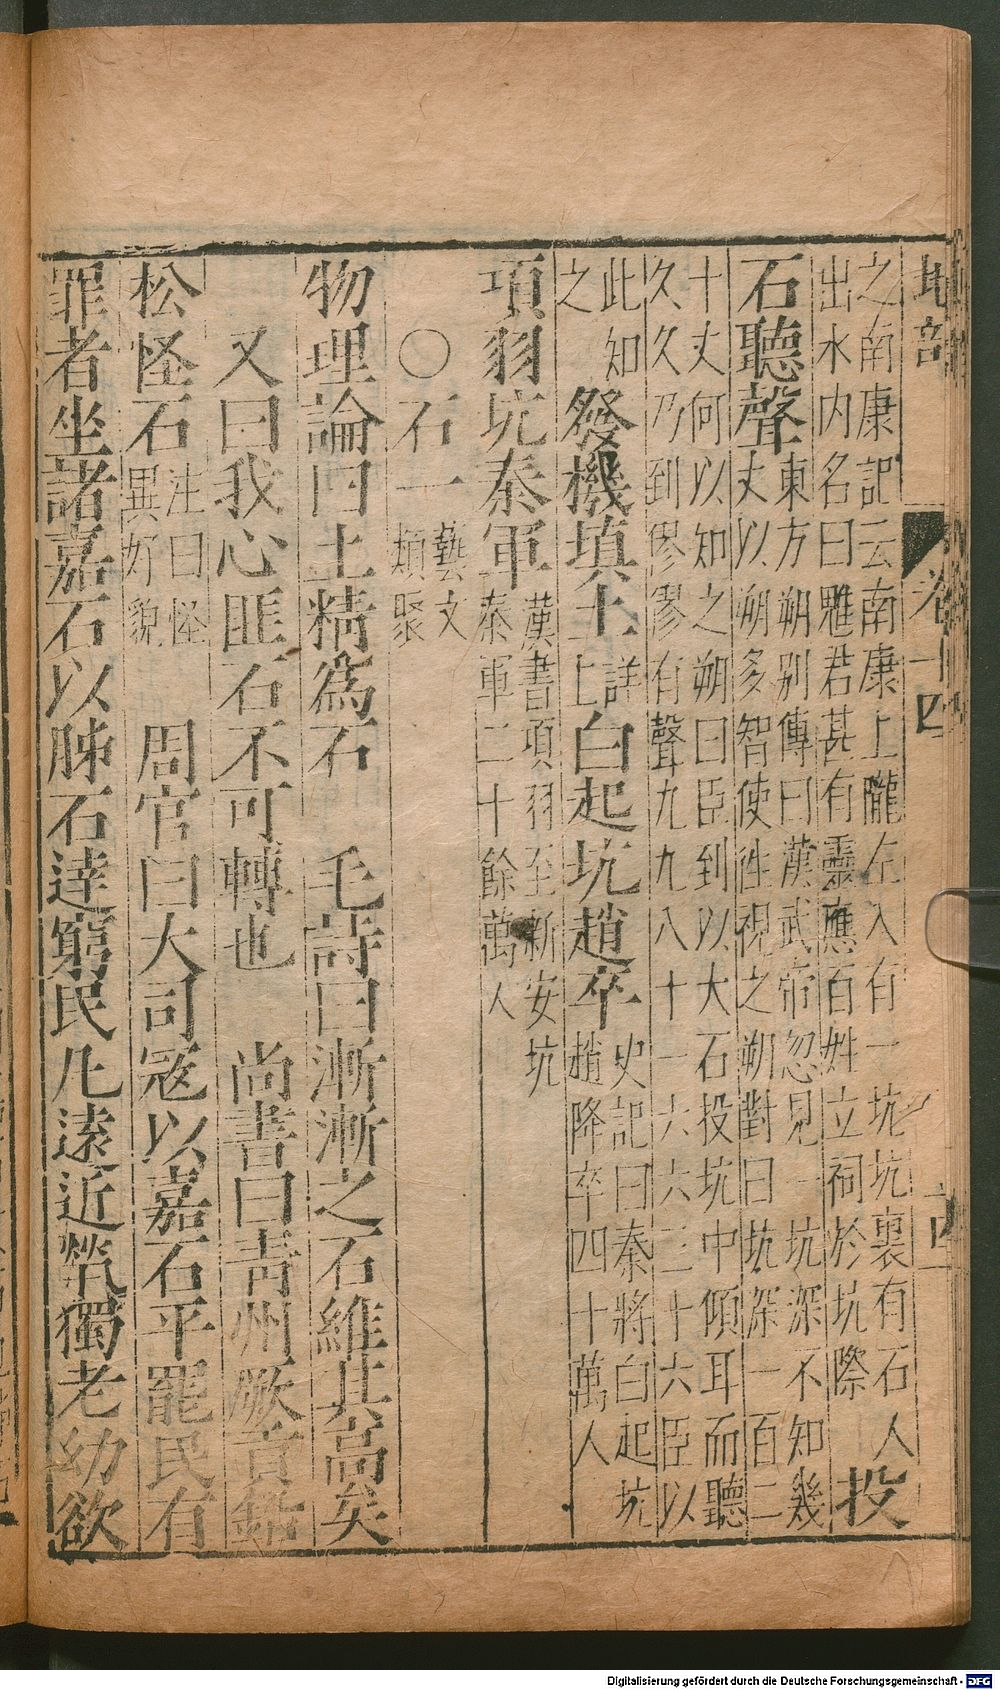 地部 卷十四 十四
之南康記云南康上隴左入有一坑坑裏有石人
出水内名曰雕君甚有靈應百姓立祠於坑際 投
石聽聲 東方朔別傳曰漢武帝忽見一坑深不知幾
丈以朔多智使往視之朔對曰坑深一百二
十丈何以知之朔曰臣到以大石投坑中傾耳而聽
久久乃到寥寥有聲九九八十一六六三十六臣以
此知之 發機填土 詳上 白起坑趙卒 史記曰秦將白起坑
趙降卒四十萬人
項羽坑秦軍 漢書項羽至新安坑
秦軍二十餘萬人
○石一 藝文類聚
物理論曰土精爲石 毛詩曰漸漸之石維其高矣
又曰我心匪石不可轉也 尚書曰青州厥貢鉛
松怪石 注曰怪異好貌 周官曰大司寇以嘉石平罷民有
罪者坐諸嘉石以胏石達窮民凡遠近煢獨老幼欲
Digitalisierung gefördert durch die Deutsche Forschungsgemeinschaft - DFG